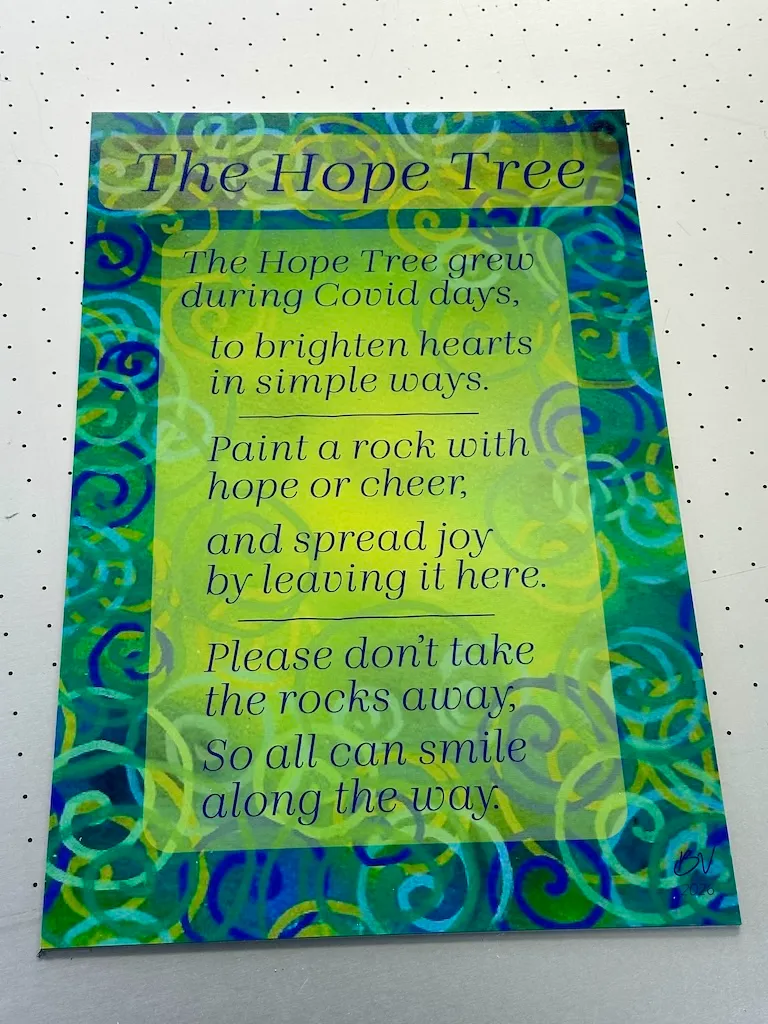 The Hope Tree
The Hope Tree grew
during Covid days,
to brighten hearts
in simple ways.
Paint a rock with
hope or cheer,
and spread joy
by leaving it here.
Please don't take
the rocks away,
So all can smile
along the way.
BV
2020